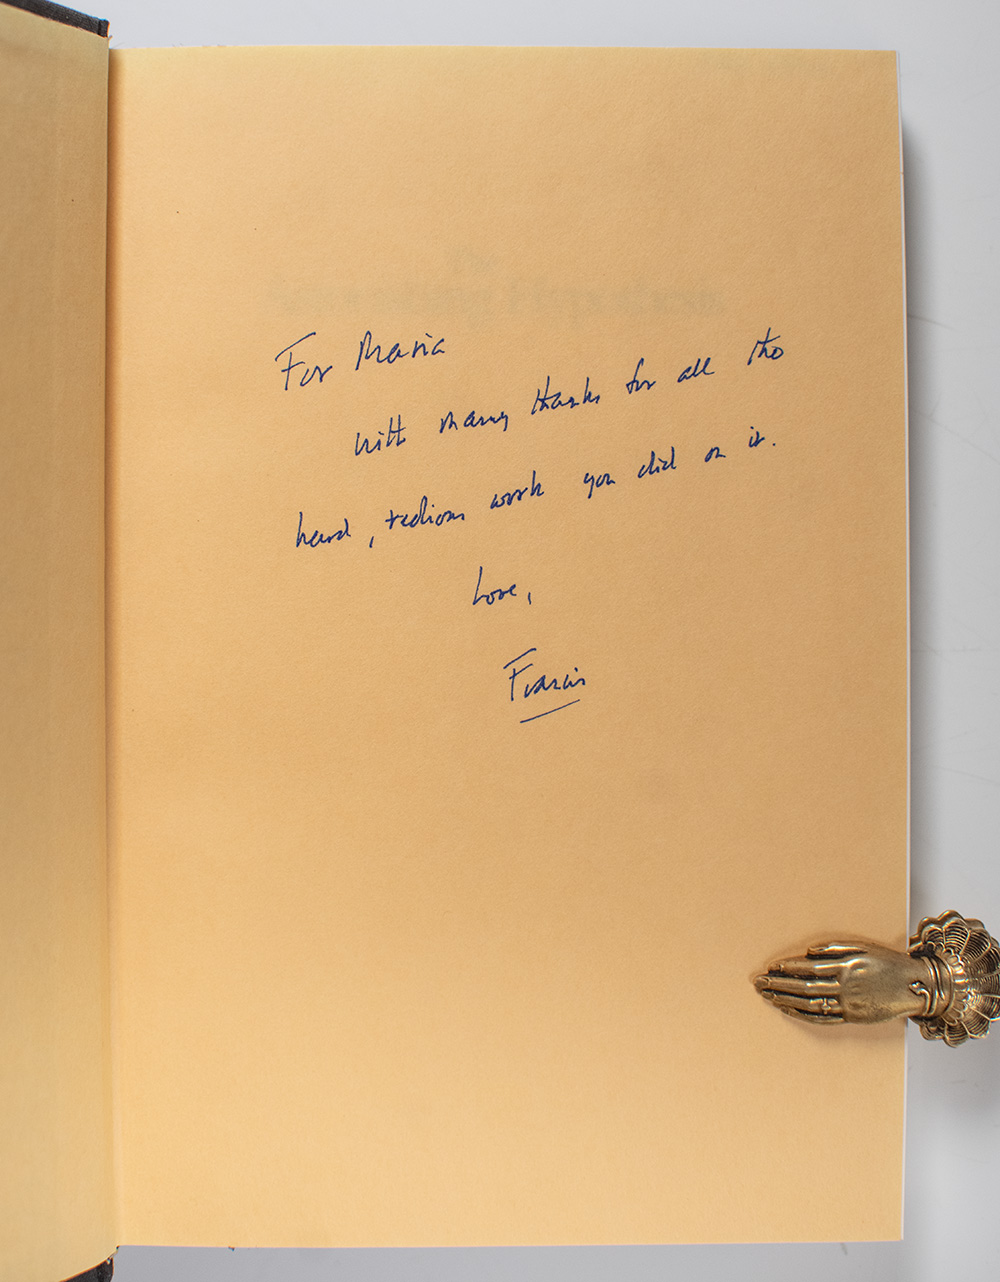 For Maria
with many thanks for all the
hard, tedious work you did on it.
Love,
Francis
The
Astonishing Hypothesis